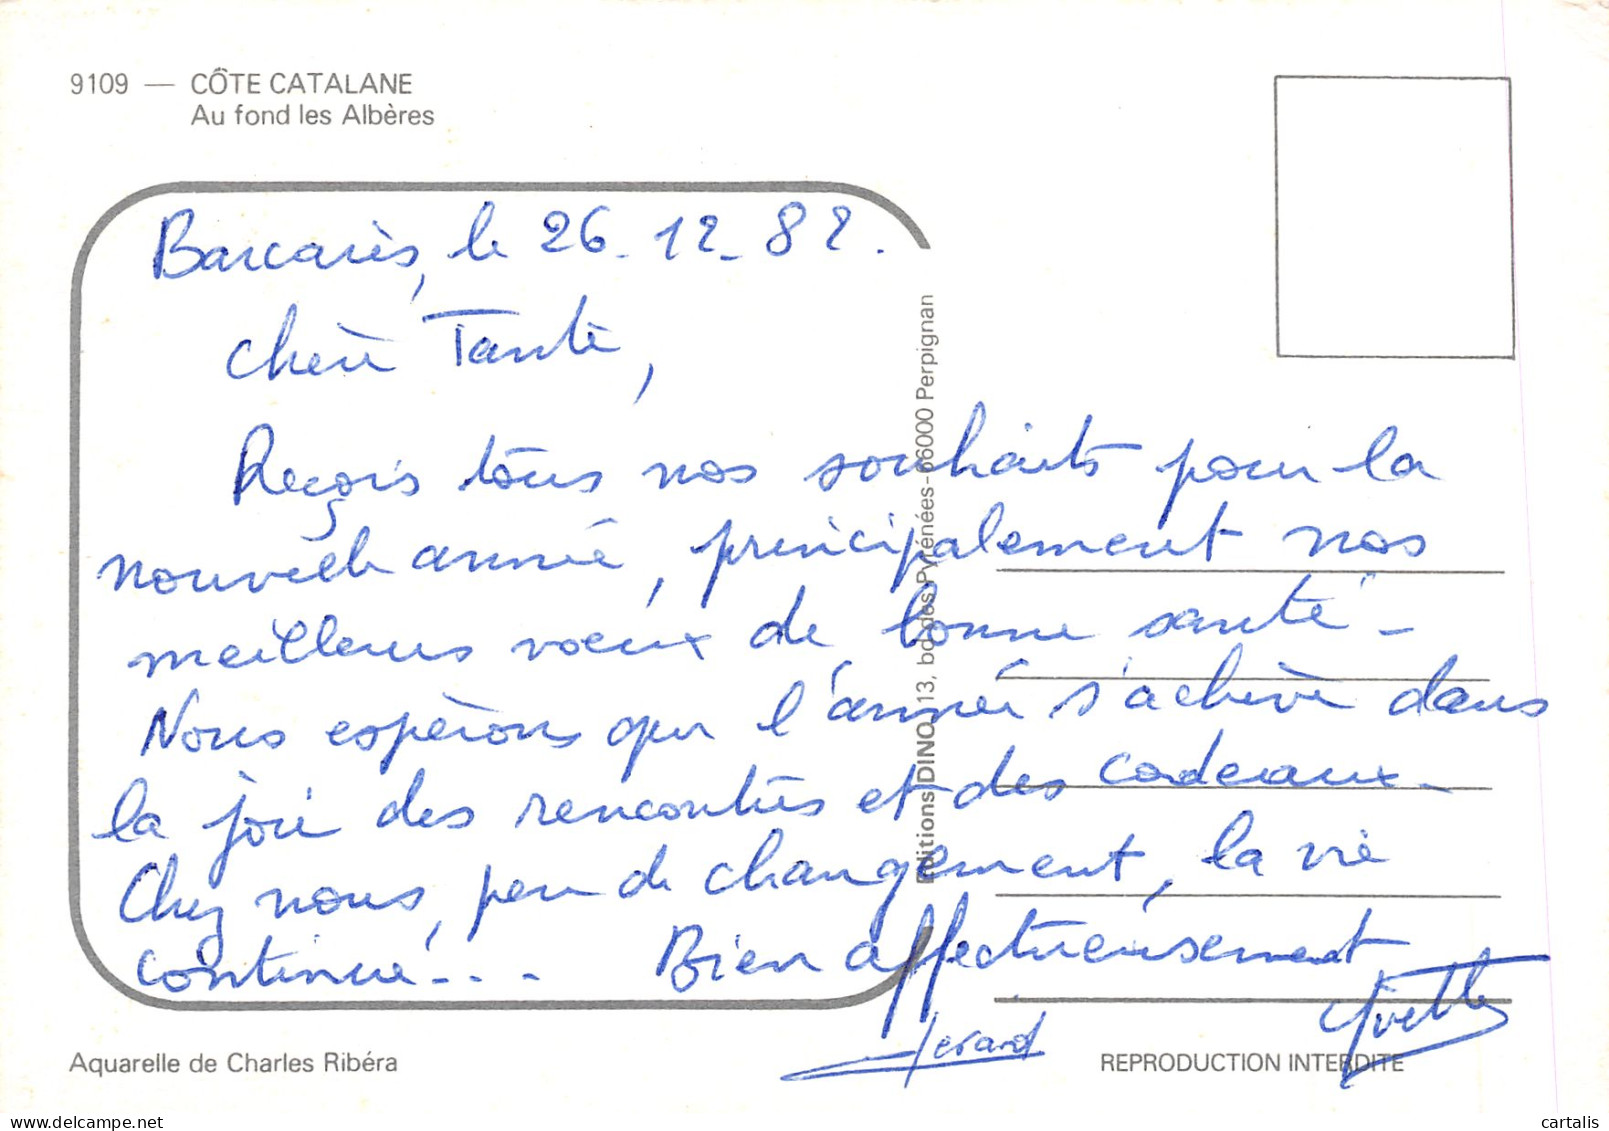 9109 — CÔTE CATALANE
Au fond les Albères
Barcarès, le 26-12-82.
Chère Tante,
Reçois tous nos souhaits pour la
nouvelle année, principalement nos
meilleurs voeux de bonne santé -
Nous espérons que l'année s'achève dans
la joie des rencontres et des cadeaux -
Chez nous, peu de changement, la vie
continue - - -  Bien affectueusement
Yvette
Gérard
Editions DINO, 13, bd des Pyrénées - 66000 Perpignan
Aquarelle de Charles Ribéra
REPRODUCTION INTERDITE
delcampe.net
cartalis